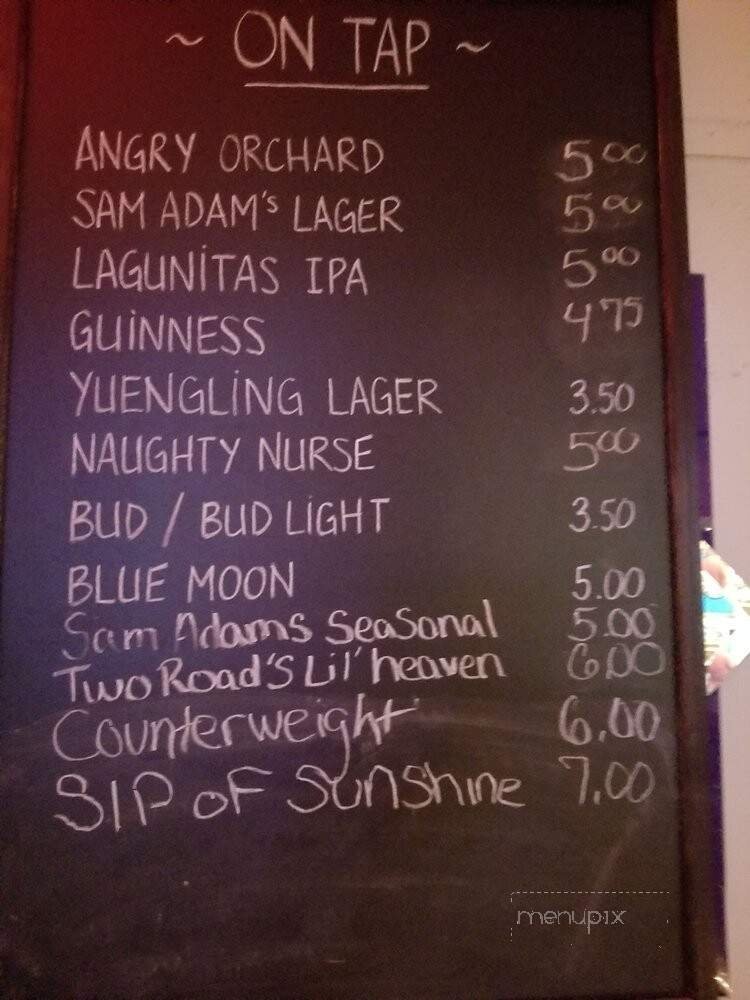 ~ ON TAP ~
ANGRY ORCHARD 5 00
SAM ADAM'S LAGER 5 00
LAGUNITAS IPA 5 00
GUINNESS 4 75
YUENGLING LAGER 3.50
NAUGHTY NURSE 5 00
BUD / BUD LIGHT 3.50
BLUE MOON 5.00
Sam Adams Seasonal 5.00
Two Road's Lil' heaven 6.00
Counterweight 6.00
SIP OF Sunshine 7.00
menupix